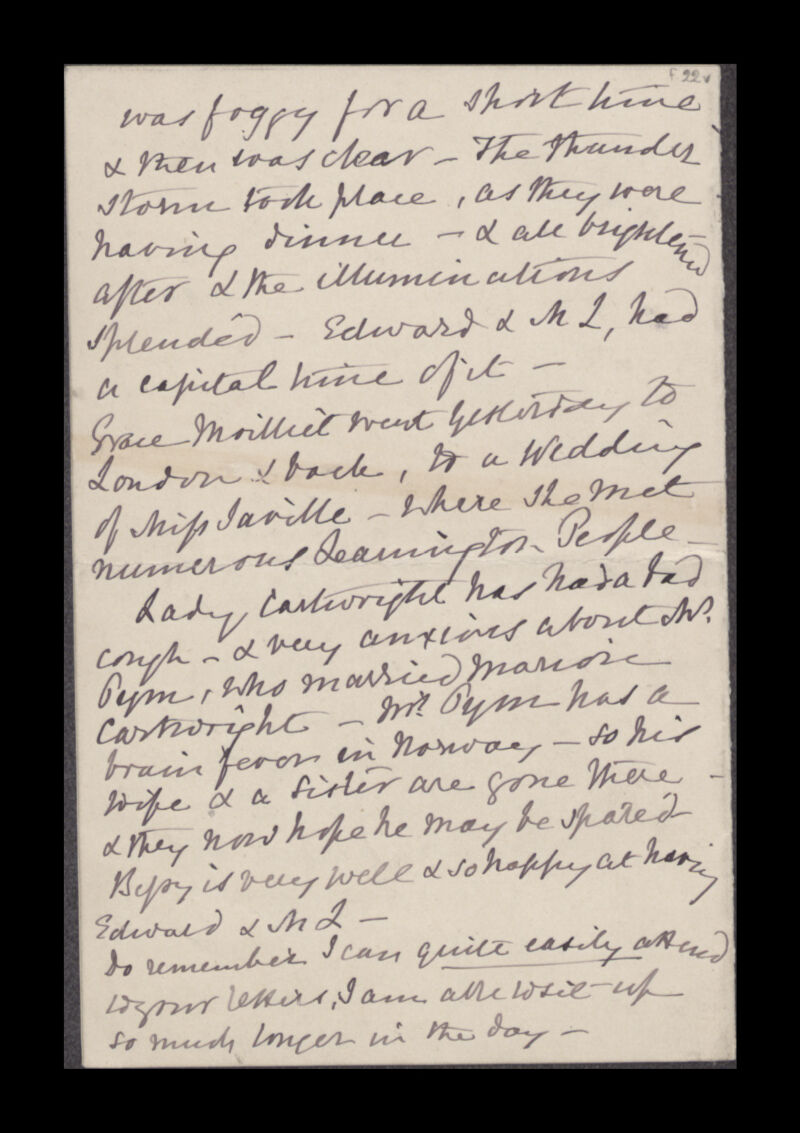 f 22v
was foggy for a short time
& then was clear – The thunder
storm took place, as they were
having dinner – & all brightened
after & the illuminations
splendid – Edward & M L, had
a capital time of it –
Grace Moilliet went yesterday to
London & back, to a Wedding
of Miss Saville – where she met
numerous Leamington People –
Lady Cartwright has had a bad
cough – & very anxious about Mr.
Pym, who married
Cartwright – Mr. Pym has a
brain fever in Norway – so his
wife & a sister are gone there –
& they now hope he may be spared
Bessy is very well & so happy at having
Edward & M L –
Do remember I can quite easily attend
to your letters, I am able to sit up
so much longer in the day –